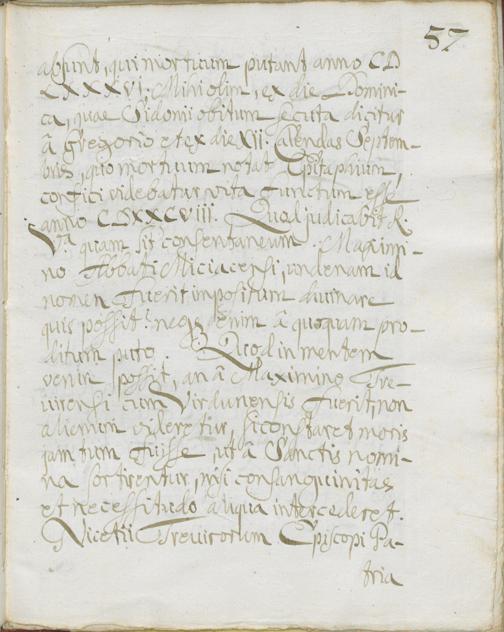 57
absunt, qui mortuum putant anno CD
LXXXVI. Mihi olim, ex die Domini-
ca, quae Sidonii obitum secuta dicitur
â Gregorio et ex die XII. Calendas Septem-
bris, quo mortuum notat Epitaphium,
confici videbatur vita functum esse
anno CDXXCVIII. Quod judicabit R.
Vª. quam sit consentaneum. Maximi-
no Abbati Miciacensi, undenam id
nomen fuerit impositum divinare
quis possit? neq; enim â quoquam pro-
ditum puto. Quod in mentem
venire possit, an â Maximino Tre-
virensi cum Virdunensis fuerit, non
alienum videretur, si constaret moris
jam tum fuisse ut â Sanctis nomi-
na sortirentur, nisi consanguinitas
et necessitudo aliqua intercederet.
Nicetii Trevirorum Episcopi Pa-
tria